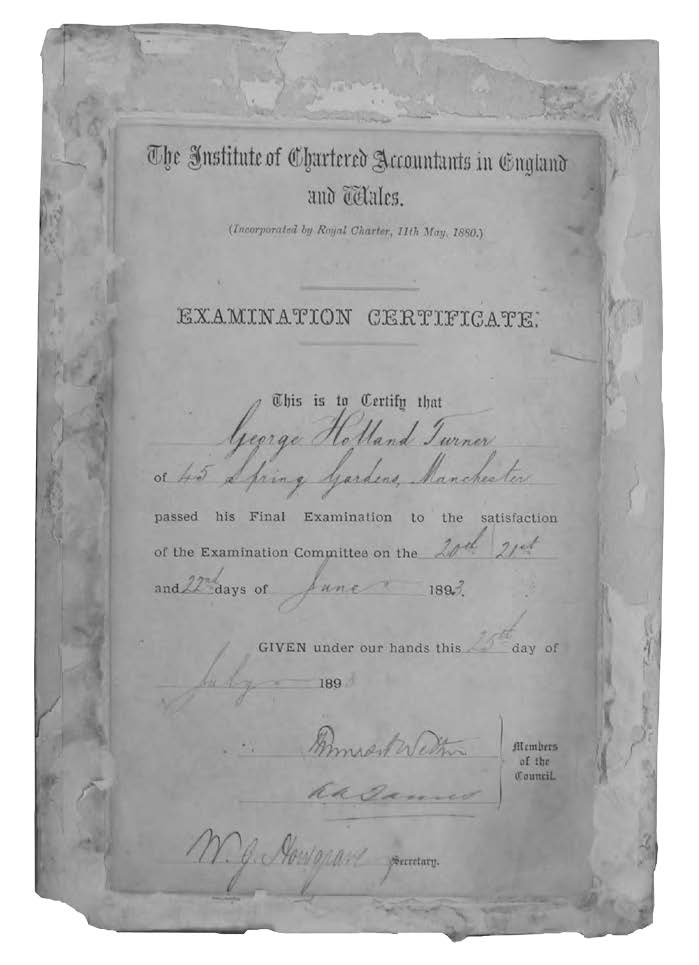 The Institute of Chartered Accountants in England
and Wales.
(Incorporated by Royal Charter, 11th May, 1880.)
EXAMINATION CERTIFICATE.
This is to Certify that
George Holland Turner
of 45 Spring Gardens, Manchester
passed his Final Examination to the satisfaction
of the Examination Committee on the 20th 21st
and 22nd days of June 1893.
GIVEN under our hands this 25th day of
July 1893
Members
of the
Council.
W. J. Howgrave Secretary.